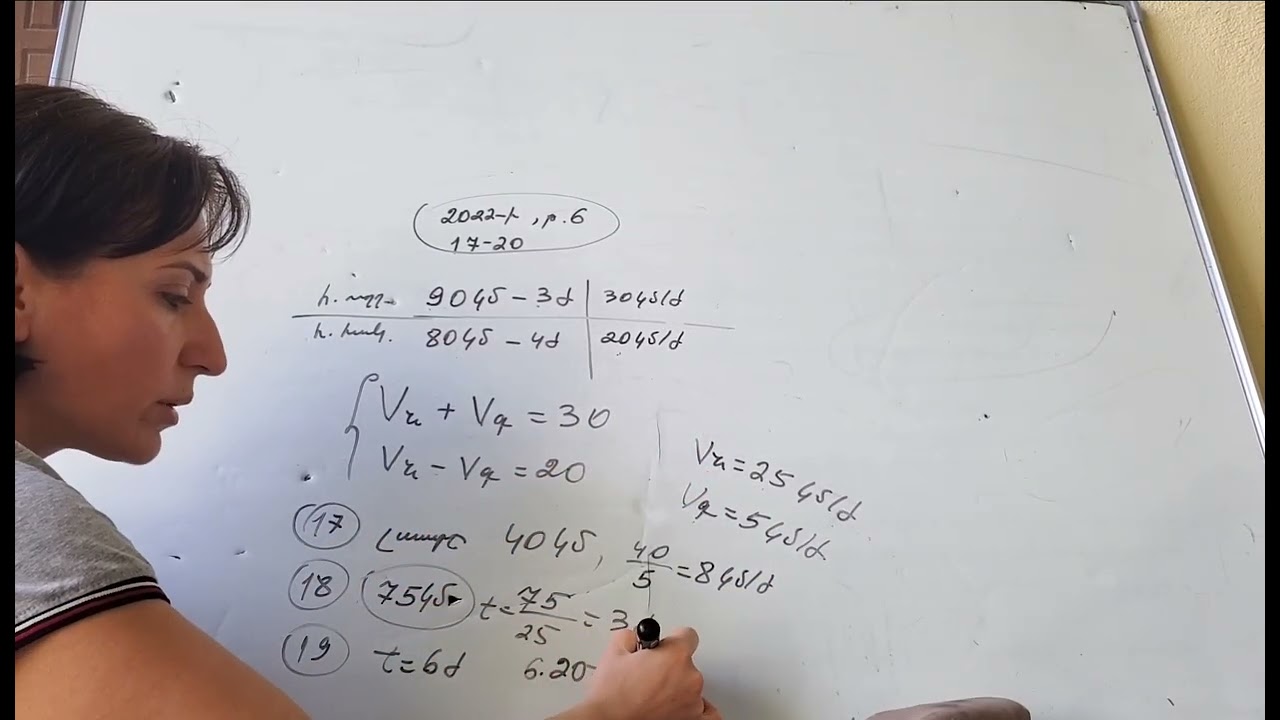 2022-թ, թ.6
17-20
հ. ուղ. 90կմ - 3ժ | 30կմ/ժ
հ. հակ. 80կմ - 4ժ | 20կմ/ժ
Vն + Vգ = 30
Vն - Vգ = 20
Vն = 25կմ/ժ
Vգ = 5կմ/ժ
17 լաստը 40կմ, 40/5 = 8կմ/ժ
18 75կմ t = 75/25 = 3
19 t = 6ժ 6·20